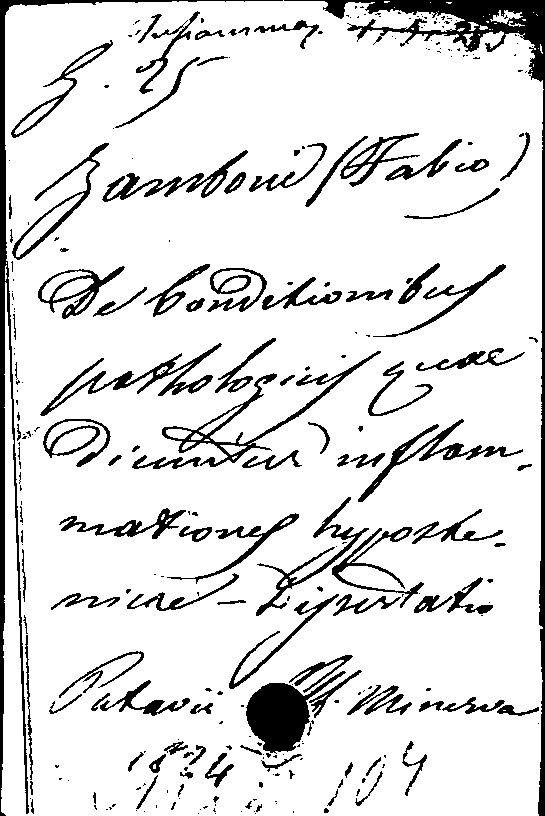 Z. 25
Zamboni (Fabio)
De Conditionibus
pathologicis quae
dicuntur inflam-
mationes hyposthe-
nicae - Dissertatio
Patavii Minerva
1834
104